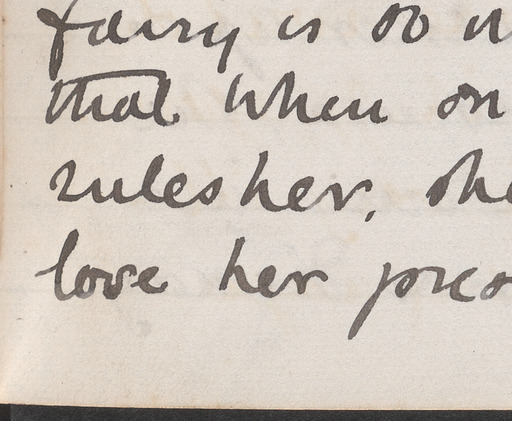 fairy is so
that when on
rules her, she
love her